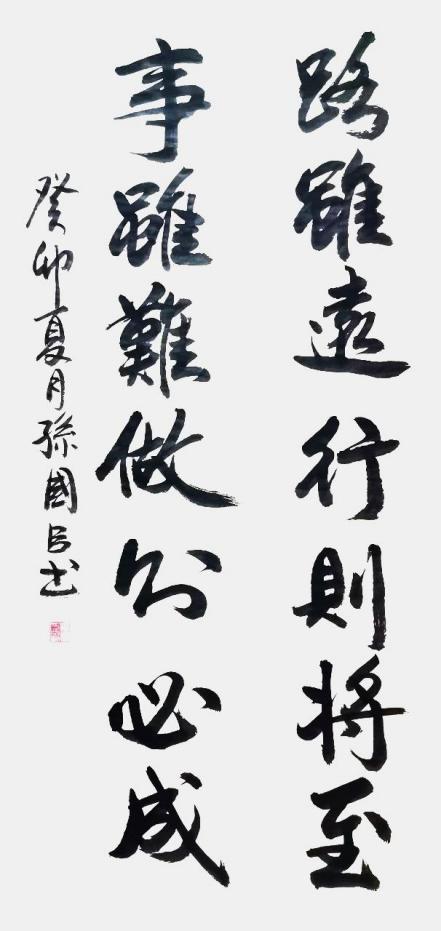 路雖遠行則将至
事雖難做则必成
癸卯夏月孫國书